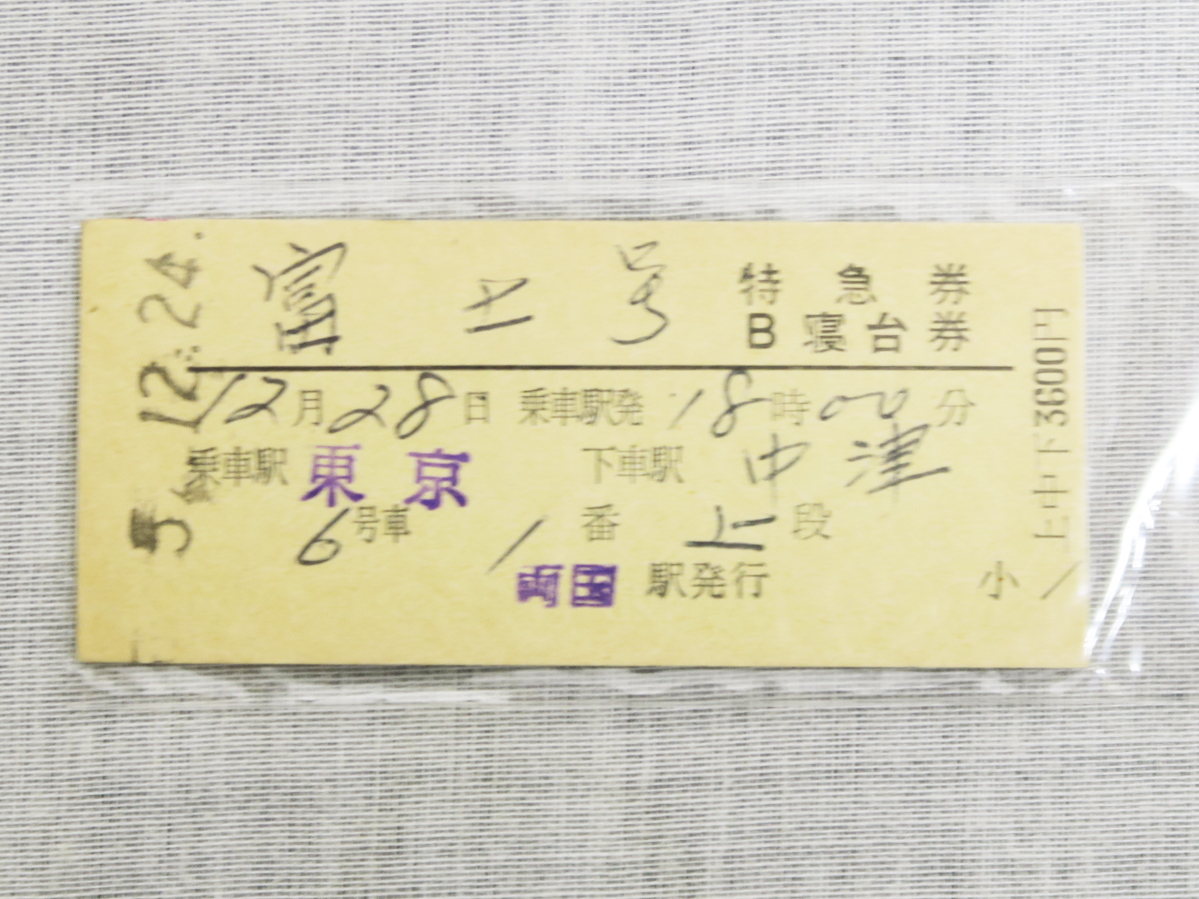 富士号 特急券
B寝台券
12月28日 乗車駅発 18時00分
乗車駅 東京 下車駅 中津
6号車 1番 上段
両国駅発行 小
上中下3600円
12.24.